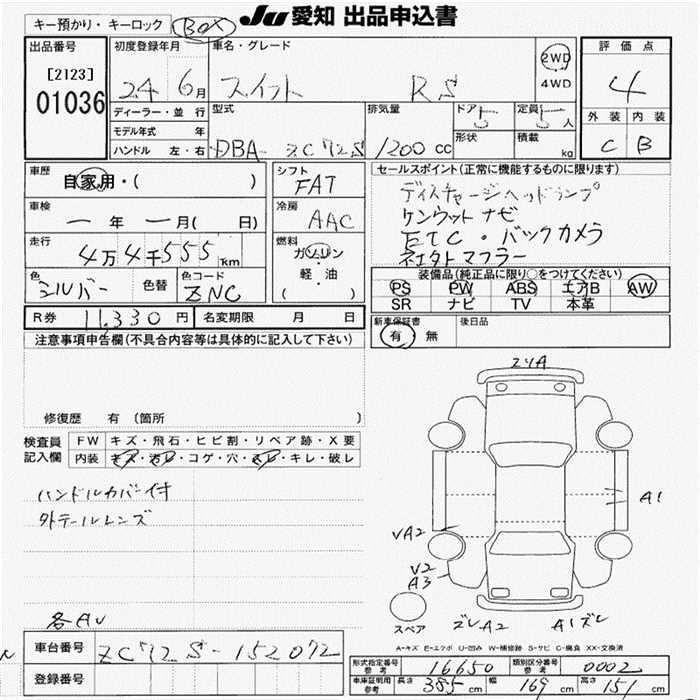 キー預かり・キーロック BOX
JU 愛知 出品申込書
出品番号
[2123]
01036
初度登録年月
24 6月
車名・グレード
スイフト RS
2WD
4WD
評価点
4
外装 内装
C B
ディーラー・並行
モデル年式 年
ハンドル 左・右
型式
DBA- ZC72S
排気量
1200 cc
ドア
5
定員
5人
形状
積載
kg
車歴
自家用・( )
シフト
FAT
車検
一 年 一 月( 日)
冷房
AAC
走行
4万4千555km
燃料
ガソリン
軽・油
( )
色
シルバー
色替
色コード
ZNC
R券 11,330 円
名変期限 月 日
セールスポイント(正常に機能するものに限ります)
ディスチャージヘッドランプ
ケンウットナビ
ETC・バックカメラ
マフラー
装備品(純正品に限り○をつけてください)
PS PW ABS エアB AW
SR ナビ TV 本革
新車保証書
有・無
後日品
注意事項申告欄(不具合内容等は具体的に記入して下さい)
修復歴 有 (箇所 )
検査員
記入欄
FW キズ・飛石・ヒビ割・リペア跡・X要
内装 キズ・汚レ・コゲ・穴・スレ・キレ・破レ
ハンドルカバー付
外テールレンズ
各AU
車台番号 ZC72S-152072
登録番号
A1
VA2
V2
A3
スペア
ズレA2
A1ズレ
A-キズ E-エクボ U-凹み W-補修跡 S-サビ C-腐食 XX-交換済
形式指定番号
参考
16650
類別区分番号
参考
0002
車庫証明用
参考
長さ 385cm 幅 169cm 高さ 151cm